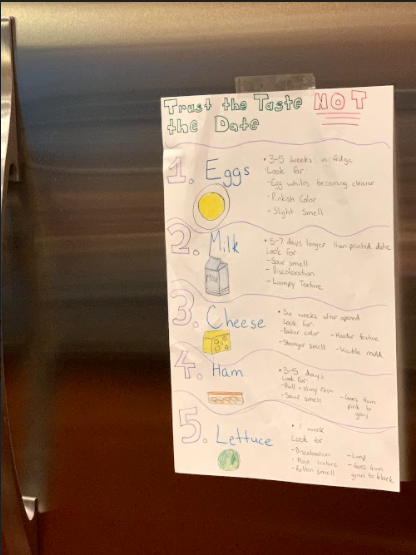 Trust the Taste NOT
the Date
1. Eggs
• 3-5 weeks in fridge
Look for
- Egg whites becoming clearer
- Pinkish Color
- Slight smell
2. Milk
• 5-7 days longer than printed date
Look for
- Sour smell
- Discoloration
- Lumpy Texture
Milk
3. Cheese
weeks after opened
Look for:
- Darker color - Harder texture
- Stronger smell - Visible mold
4. Ham
• 3-5 days
Look for:
- Dull + slimy
- Sour smell
- Goes from
pink to
gray
5. Lettuce
• 1 week
Look for
- Discoloration
- texture
- Rotten smell
- Limp
- Goes from
green to black